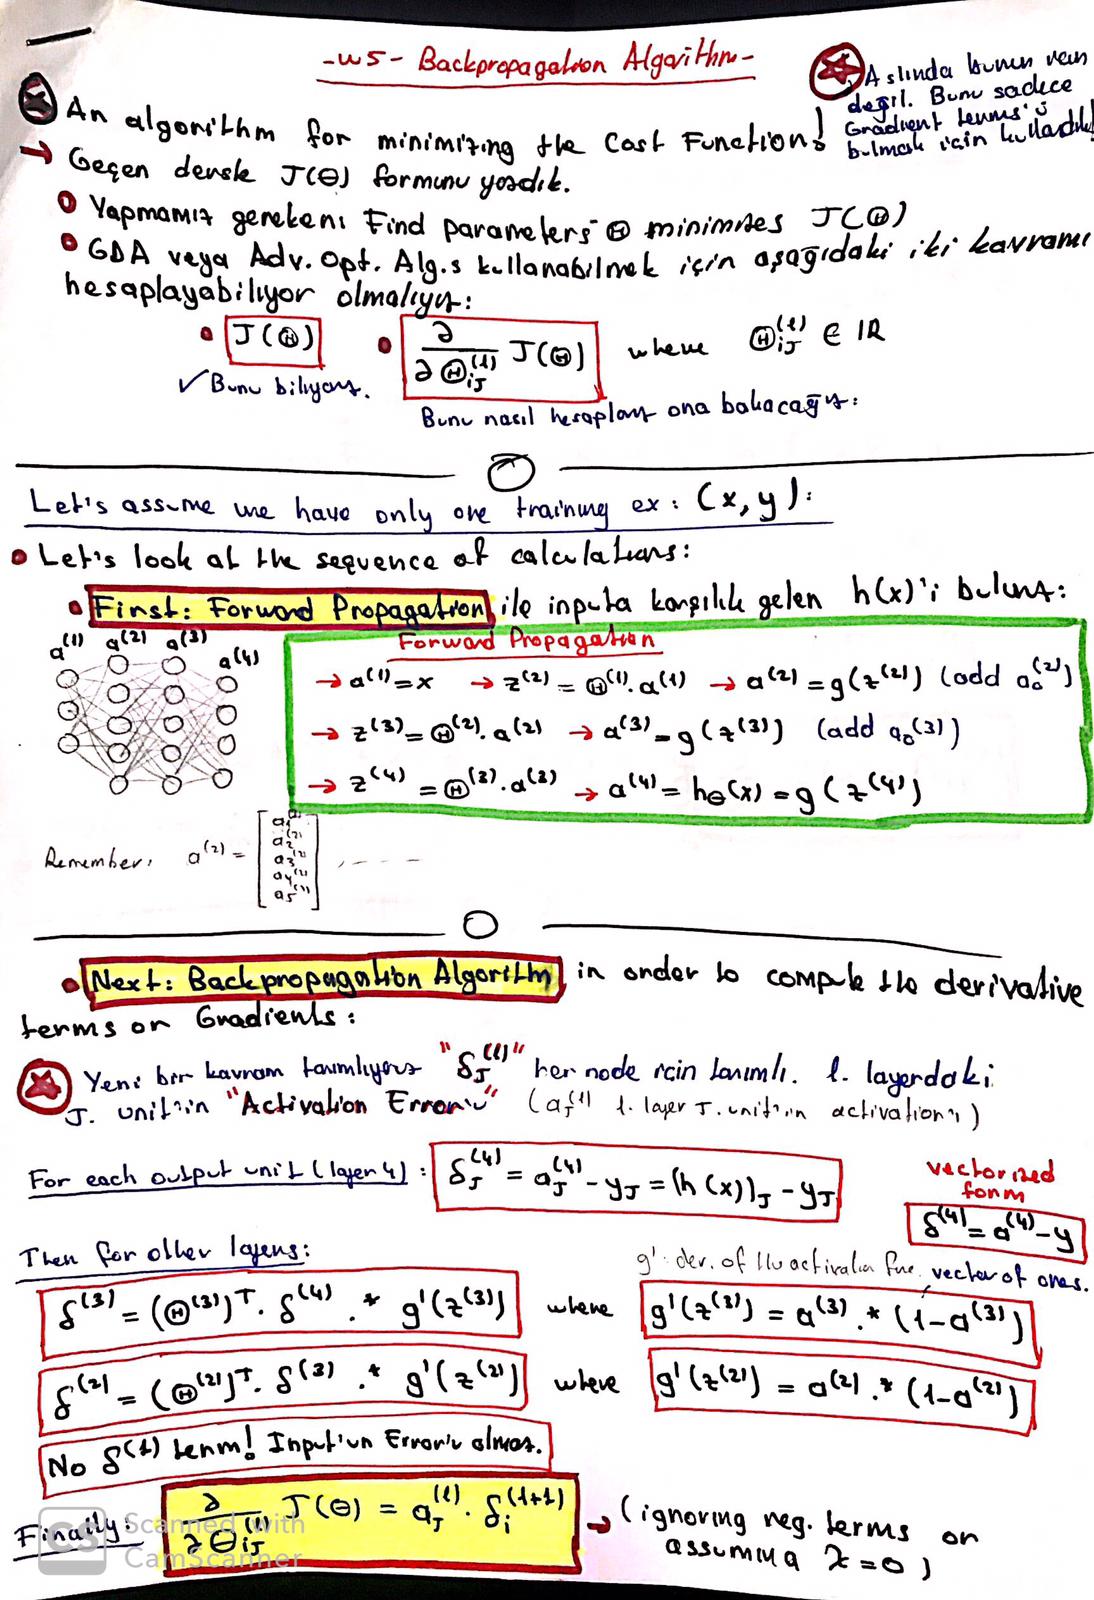 -W5- Backpropagation Algorithm-
Aslında bunun için
değil. Bunu sadece
Gradient terms'ü
bulmak için kullandık!
An algorithm for minimizing the Cost Function!
→ Geçen derste J(Θ) formunu yazdık.
Yapmamız gereken: Find parameters Θ minimizes J(Θ)
GDA veya Adv. Opt. Alg.s kullanabilmek için aşağıdaki iki kavramı
hesaplayabiliyor olmalıyız:
J(Θ) ∂/∂Θij^(l) J(Θ) where Θij^(l) ∈ IR
✓ Bunu biliyoruz.
Bunu nasıl hesaplarız ona bakacağız:
Let's assume we have only one training ex: (x,y):
Let's look at the sequence of calculations:
First: Forward Propagation ile inputa karşılık gelen h(x)'i buluruz:
a^(1) a^(2) a^(3) a^(4)
Forward Propagation
→ a^(1) = x → z^(2) = Θ^(1). a^(1) → a^(2) = g(z^(2)) (add a0^(2))
→ z^(3) = Θ^(2). a^(2) → a^(3) = g(z^(3)) (add a0^(3))
→ z^(4) = Θ^(3). a^(3) → a^(4) = hΘ(x) = g(z^(4))
Remember: a^(2) = [a1^(2) a2^(2) a3^(2) a4^(2) a5^(2)] , - - - -
Next: Backpropagation Algorithm in order to compute the derivative
terms or Gradients:
Yeni bir kavram tanımlıyoruz "δJ^(l)" her node için tanımlı. l. layerdaki
J. unit'in "Activation Error'u" (aJ^(l) l. layer J. unit'in activation'ı)
For each output unit (layer 4): δJ^(4) = aJ^(4) - yJ = (h(x))J - yJ
vectorized
form
δ^(4) = a^(4) - y
Then for other layers:
g': der. of the activation func. vector of ones.
δ^(3) = (Θ^(3))^T. δ^(4) .* g'(z^(3)) where g'(z^(3)) = a^(3) .* (1-a^(3))
δ^(2) = (Θ^(2))^T. δ^(3) .* g'(z^(2)) where g'(z^(2)) = a^(2) .* (1-a^(2))
No δ^(1) term! Input'un Error'u olmaz.
Finally: ∂/∂Θij^(l) J(Θ) = aJ^(l). δi^(l+1) → (ignoring reg. terms or
assuming λ=0)
CS Scanned with
CamScanner